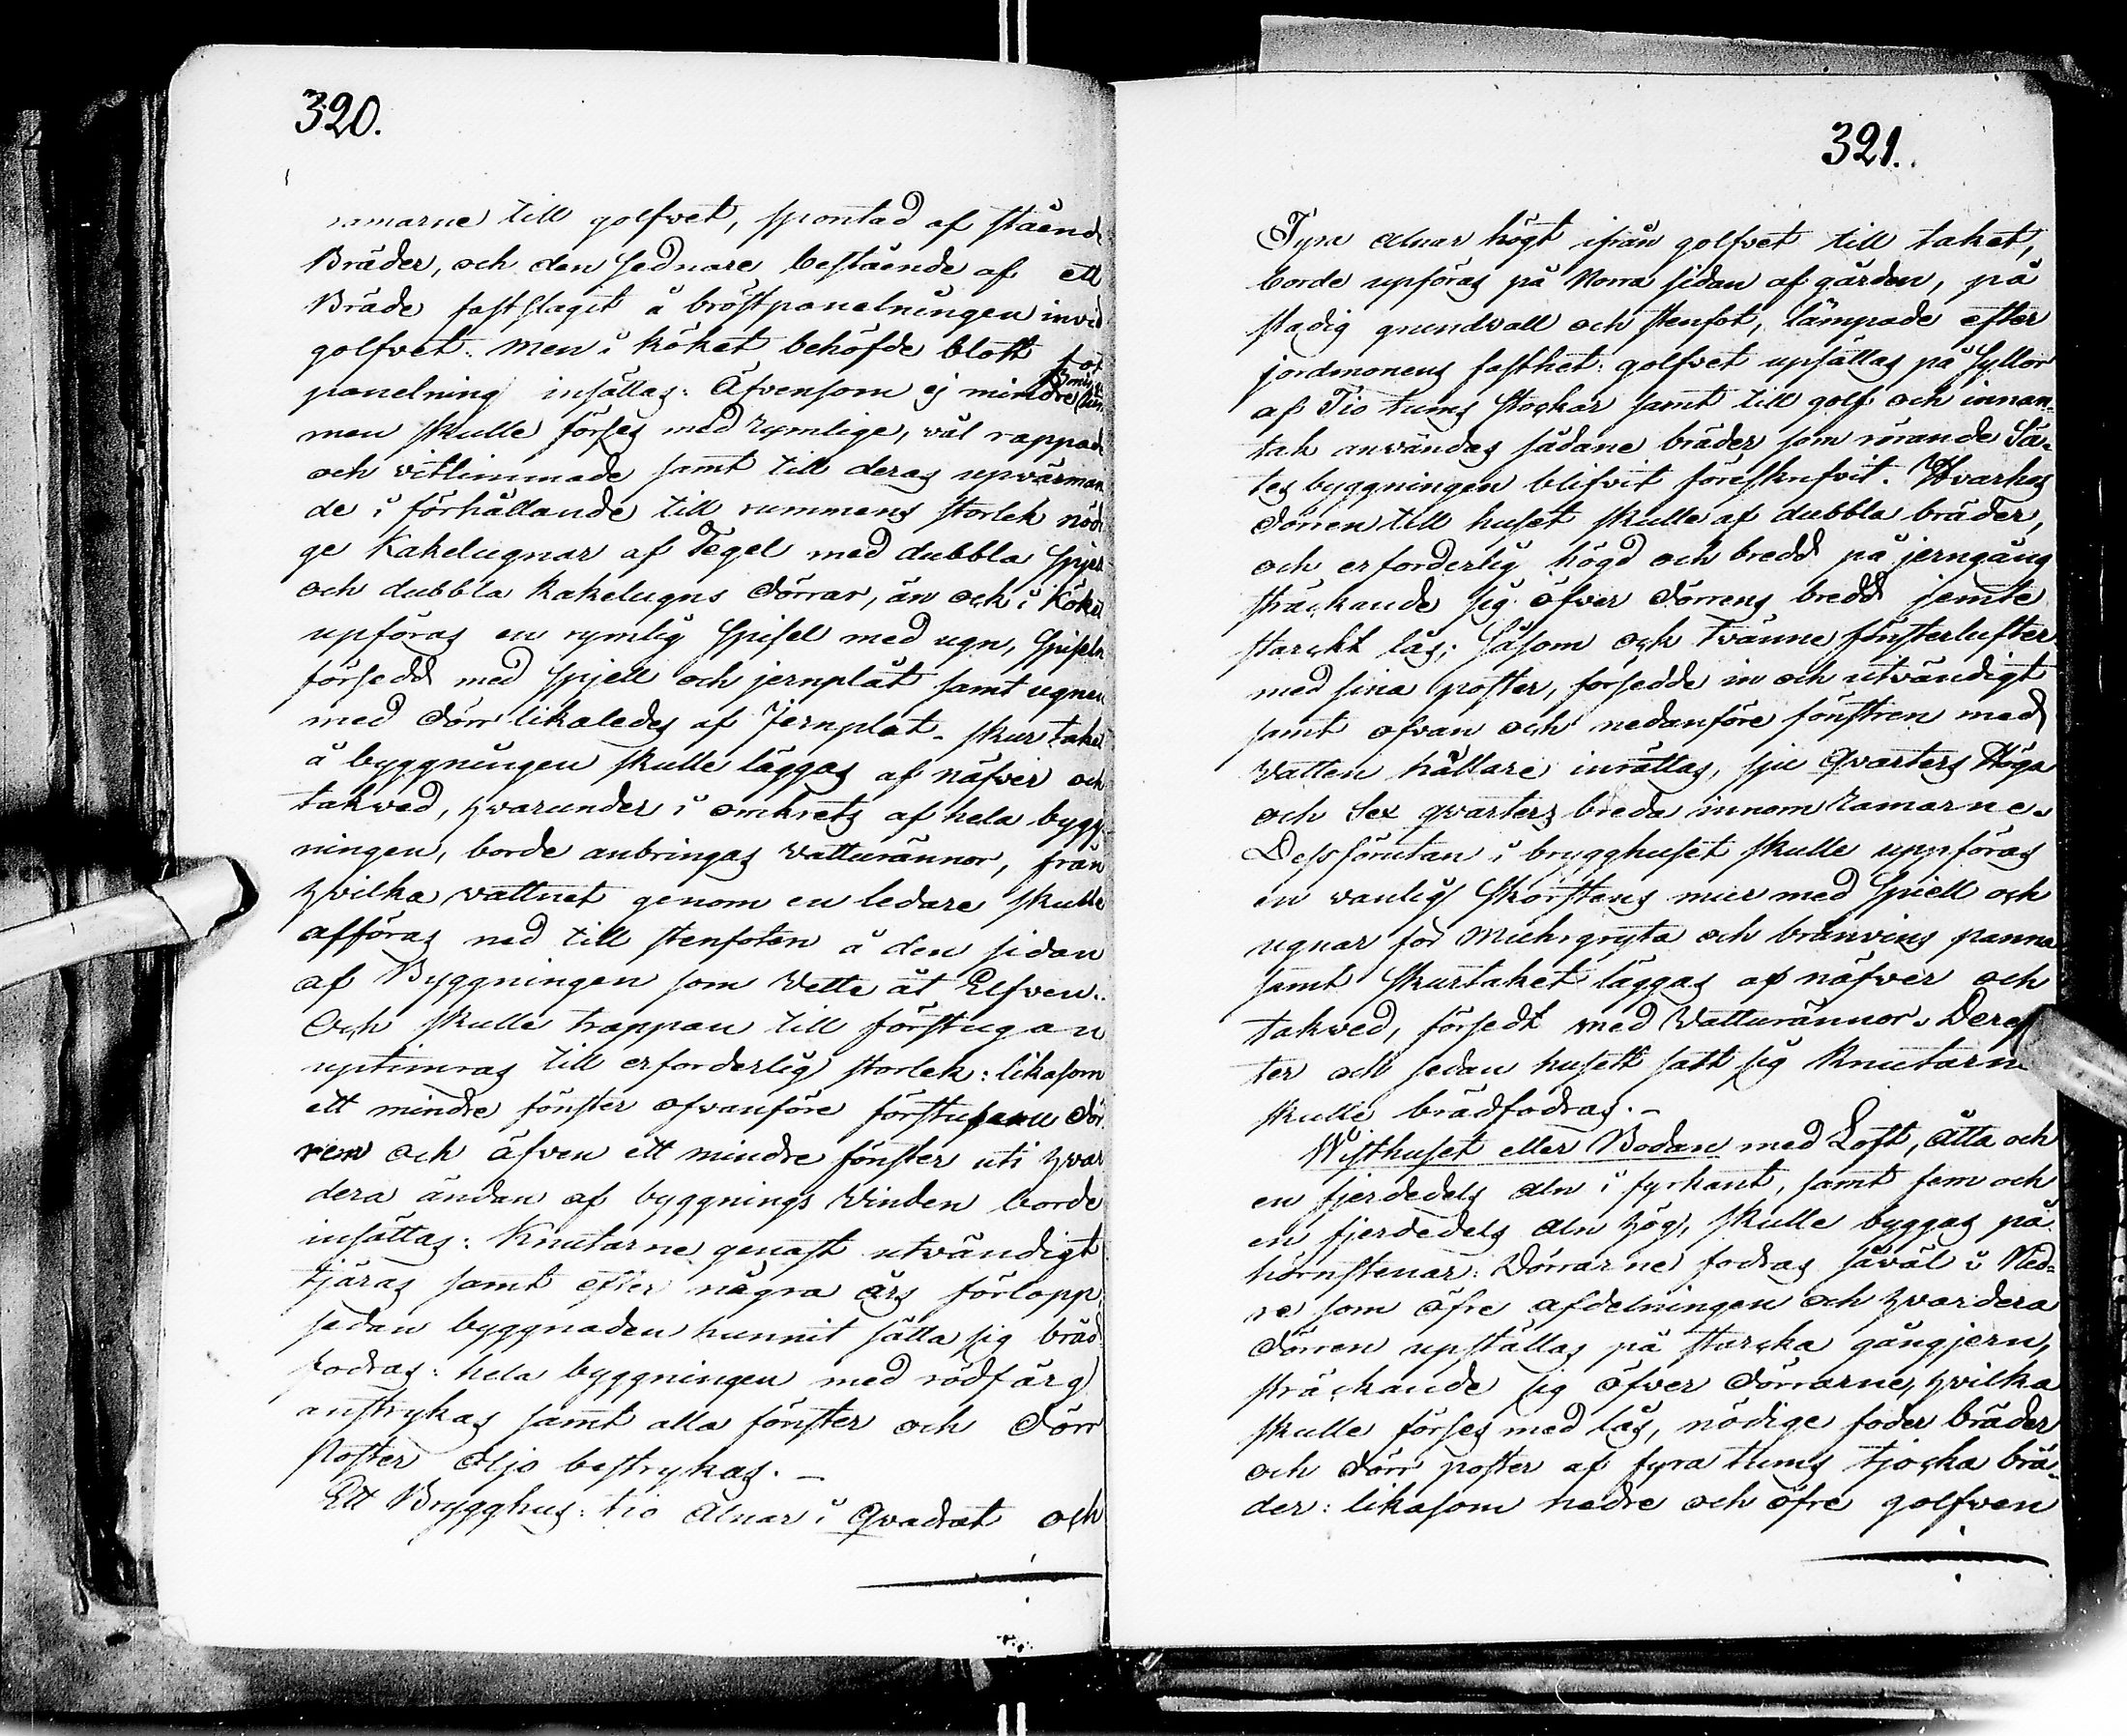 320.
marne till golfvet, spontad af stående
Bräder, och den sednare bestående af ett
Bräde fastslaget å bröstpanelningen invid
golfvet. men i köket behöfde blott fot
panelning insättas: Äfvensom ej mindre
men skulle förses med rymlige, väl rappade
och vitlimmade samt till deras upvärman
de i förhållande till rummens storlek nödi
ge Kakelugnar af Tegel med dubbla Spjell
och dubbla kakelugns dörrar, än och i Köket
upföras en rymlig Spisel med ugn, Spiseln
försedd med Spjell och jernplåt samt ugnen
med dörr likaledes af Jernplåt – skurtaket
å byggningen skulle läggas af näfver och
takved, hvarunder i omkrets af hela bygg-
ningen, borde anbringas Vatturännor, från
hvilka vattnet genom en ledare skulle
afföras ned till stenfoten å den sidan
af Byggningen som Vette åt Elfven..
Och skulle trappan till förstugan
uptimras till erforderlig storlek: likasom
ett mindre fönster ofvanföre förstugu dör
ren och äfven ett mindre fönster uti hvar
dera ändan af byggnings Vinden borde
insättas: Knutarne genast utvändigt
tjäras samt efter några års förlopp
sedan byggnaden hunnit sätta sig bräd
fodras: hela byggningen med rödfärg
anstrykas samt alla fönster och Dörr
poster oljo bestrykas. –
Ett Brygghus: tio alnar i Qvadrat och
321.
Fyra alnar högt ifrån golfvet till taket,
borde upföras på Norra sidan af gården, på
stadig grundvall och stenfot, lämpade efter
jordmonens fasthet: golfvet upsättas på Syllor
af Tio tums Stockar samt till golf och innan-
tak användas sådane bräder som rörande Sä-
tesbyggningen blifvit föreskrifvit. Hvarhos
dörren till huset skulle af dubbla bräder,
och erforderlig högd och bredd på jerngång
sträckande sig öfver dörrens bredd jemte
starckt lås; såsom ock Tvänne fönsterlufter
med sina poster, försedde in och utvändigt
samt ofvan och nedanföre fönstren med
Vatten hållare inrättas, sju Qvarters Höga
och Sex qvarters breda innom ramarne.
Dessförutan i brygghuset skulle uppföras
en vanlig Skorstens mur med Spiell och
ugnar för Mäskgryta och bränvins panna
samt Skurtaket läggas af näfver och
takved, försedt med Vatturännor. Deref
ter och sedan husett satt sig Knutarne
skulle brädfodras. –
Visthuset eller Bodan med Loft, åtta och
en fjerdedels aln i fyrkant, samt fem och
en fjerdedels aln hög, skulle byggas på
hörnstenar: Dörrarne fodras såväl i Ned-
re som öfre afdelningen och hvardera
dörren upställas på starcka gångjern,
sträckande sig öfver dörrarne, hvilka
skulle förses med lås, nödige foder bräder
och dörr poster af fyra tums tjocka brä-
der: likasom nedre och öfre golfven